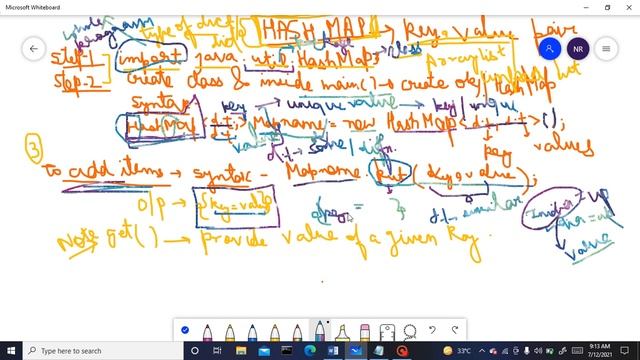 Microsoft Whiteboard
under
program
type of dict
HASH MAP → Key = Value pair
NR
step-1 import java. util. HashMap;
arraylist
step-2 create class & inside main() → create obj HashMap
syntax key → unique value → key unique
HashMap <d.t, d.t> Mapname = new HashMap <d.t, d.t> ();
value d.t → same / diff. key values
③
To add items → syntax - Mapname. put (key, value);
O/P → {key = value} d.t → similar
India = up
value
Note get() → provide value of a given key.
Type here to search
33°C
ENG
9:13 AM
7/12/2021